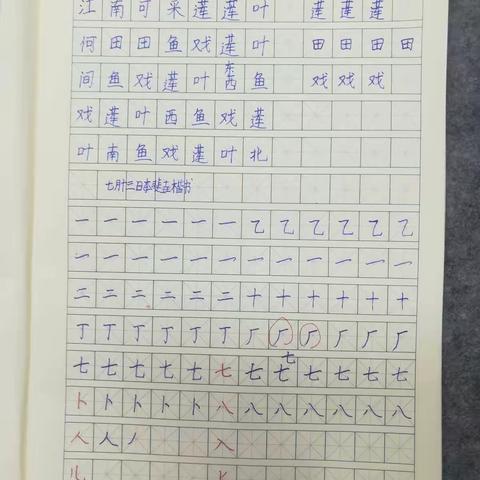 江南可采莲莲叶 莲莲莲
何田田鱼戏莲叶 田田田田
间鱼戏莲叶东西鱼 戏戏戏
戏莲叶西鱼戏莲
叶南鱼戏莲叶北
七月十三日
一一一一一一乙乙乙乙乙乙
一一一一一一一一一一一一
二二二二二二十十十十十十
丁丁丁丁丁丁厂厂厂厂厂厂
七七七七七七七七七七七七七
卜卜卜卜卜八八八八八八八
人人 入
儿